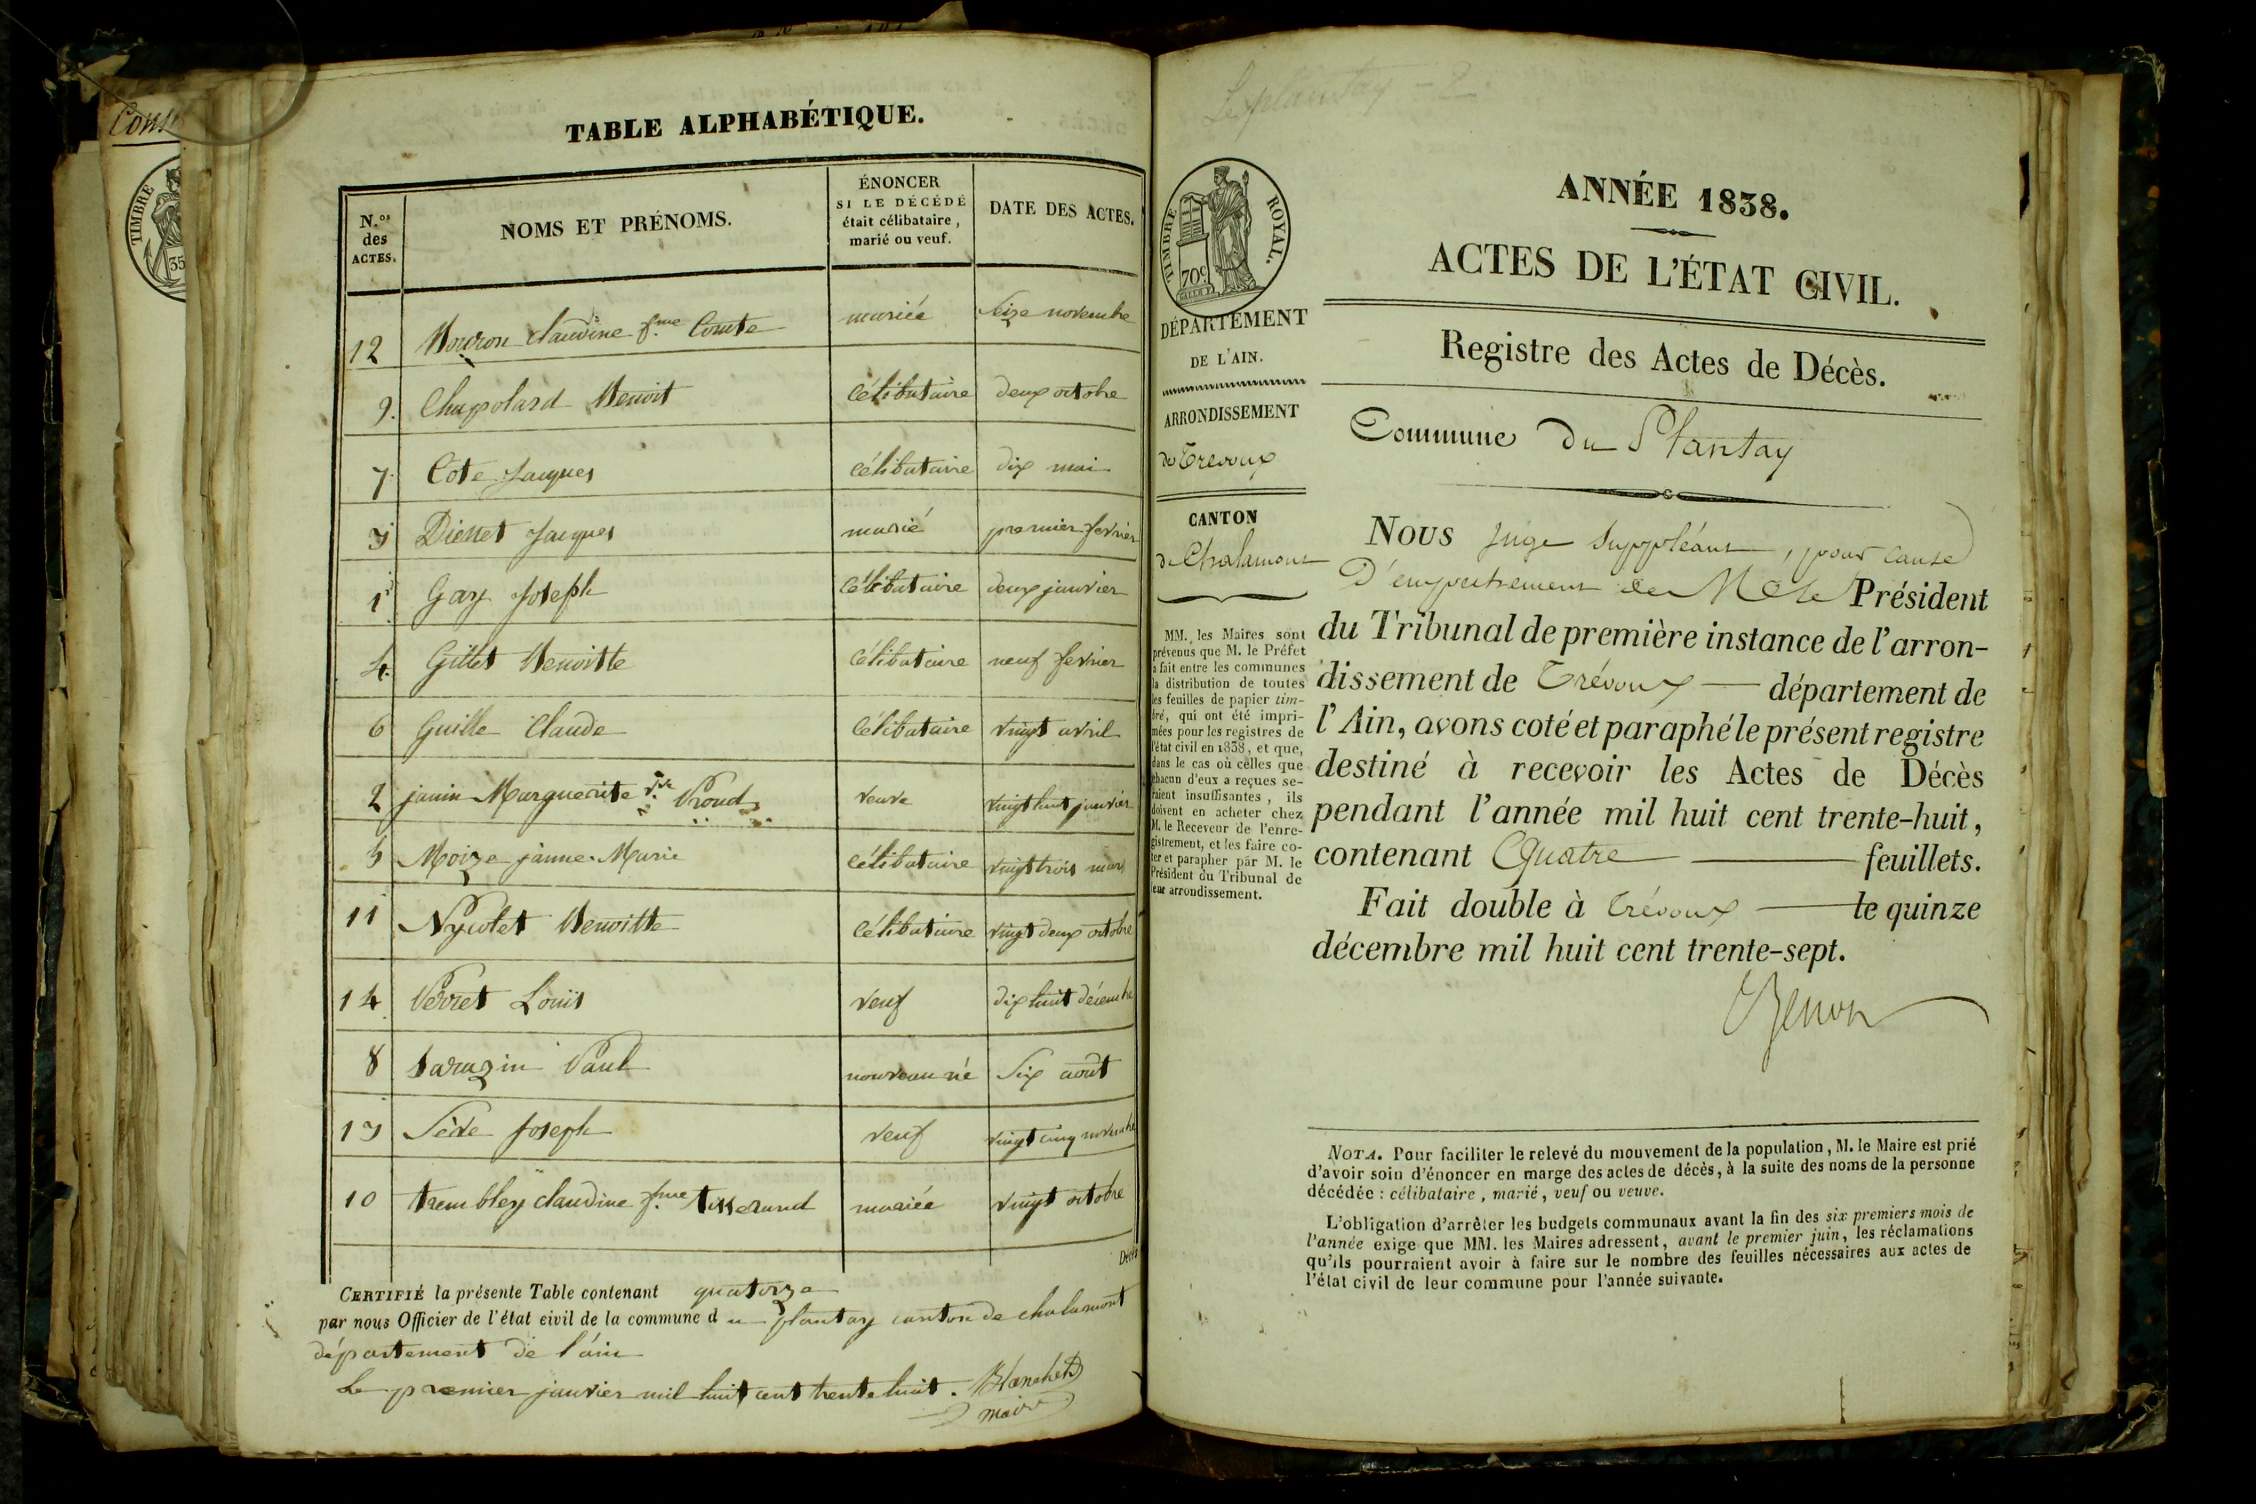 Cons
TIMBRE
35
TABLE ALPHABÉTIQUE.
N.os des ACTES.
NOMS ET PRÉNOMS.
ÉNONCER SI LE DÉCÉDÉ était célibataire, marié ou veuf.
DATE DES ACTES.
12 Bouron claudine fme Comte mariée Seize novembre
9. Chapolard Benoit célibataire deux octobre
7. Cote Jacques célibataire dix mai
3 Diennet Jacques marié premier fevrier
1 Gay Joseph célibataire deux janvier
4. Gillet Benoitte célibataire neuf fevrier
6 Guille Claude célibataire vingt avril
2 janin Marguerite vve Proud veuve vingt huit janvier
5 Moize janne Marie célibataire vingt trois mars
11 Nycolet Benoitte célibataire vingt deux octobre
14 Perret Louis veuf dix huit décembre
8 Sarazin Paul nouveau né Six août
13 Sève Joseph veuf vingt cinq novembre
10 trembley claudine fme tisserand mariée vingt octobre
Décès
CERTIFIÉ la présente Table contenant quatorze
par nous Officier de l'état civil de la commune du plantay canton de chalamont
département de l'ain
Le premier janvier mil huit cent trente huit. Blanchet
maire
Le plantay - 2
TIMBRE ROYAL.
70c.
DÉPARTEMENT
DE L'AIN.
ARRONDISSEMENT
de Trevoux
CANTON
de Chalamont
MM. les Maires sont
prévenus que M. le Préfet
a fait entre les communes
la distribution de toutes
les feuilles de papier tim-
bré, qui ont été impri-
mées pour les registres de
l'état civil en 1838, et que,
dans le cas où celles que
chacun d'eux a reçues se-
raient insuffisantes, ils
doivent en acheter chez
M. le Receveur de l'enre-
gistrement, et les faire co-
ter et parapher par M. le
Président du Tribunal de
leur arrondissement.
ANNÉE 1838.
ACTES DE L'ÉTAT CIVIL.
Registre des Actes de Décès.
Commune du Plantay
NOUS juge suppléant, pour cause
D'empechement de M. le Président
du Tribunal de première instance de l'arron-
dissement de Trévoux département de
l'Ain, avons coté et paraphé le présent registre
destiné à recevoir les Actes de Décès
pendant l'année mil huit cent trente-huit,
contenant Quatre feuillets.
Fait double à Trévoux le quinze
décembre mil huit cent trente-sept.
NOTA. Pour faciliter le relevé du mouvement de la population, M. le Maire est prié
d'avoir soin d'énoncer en marge des actes de décès, à la suite des noms de la personne
décédée : célibataire, marié, veuf ou veuve.
L'obligation d'arrêter les budgets communaux avant la fin des six premiers mois de
l'année exige que MM. les Maires adressent, avant le premier juin, les réclamations
qu'ils pourraient avoir à faire sur le nombre des feuilles nécessaires aux actes de
l'état civil de leur commune pour l'année suivante.